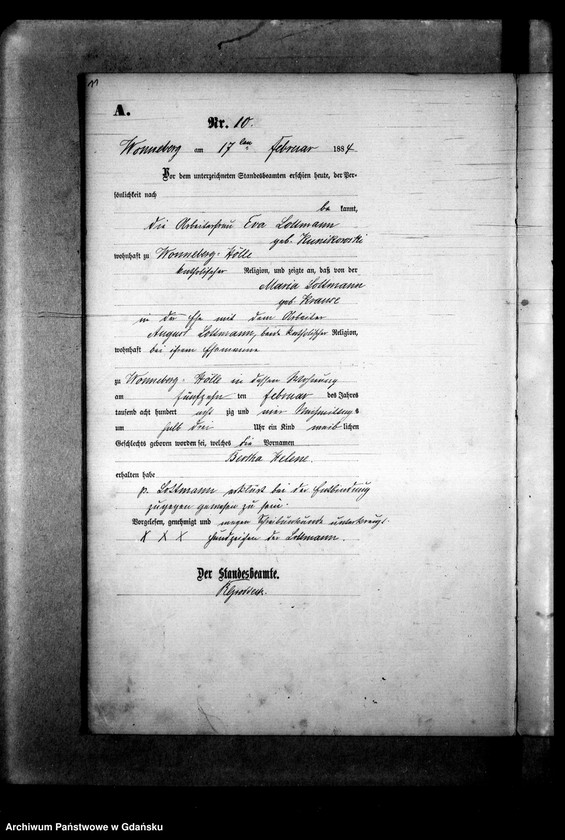 11
A.
Nr. 10.
Wonneberg am 17ten Februar 1884
Vor dem unterzeichneten Standesbeamten erschien heute, der Per-
sönlichkeit nach
be kannt,
die Arbeiterfrau Eva Lottmann
geb. Kunikowski
wohnhaft zu Wonneberg-Hölle
katholischer Religion, und zeigte an, daß von der
Maria Lottmann
geb. Krause
in der Ehe mit dem Arbeiter
August Lottmann, beide katholischer Religion,
wohnhaft bei ihrem Ehemanne
zu Wonneberg-Hölle in dessen Wohnung
am fünfzehn ten Februar des Jahres
tausend acht hundert acht zig und vier Nachmittags
um halb drei Uhr ein Kind weib lichen
Geschlechts geboren worden sei, welches die Vornamen
Bertha Helene.
erhalten habe
p. Lottmann erklärt bei der Entbindung
zugegen gewesen zu sein.
Vorgelesen, genehmigt und wegen Schreibunkunde unterkreuzt.
X X X Handzeichen der Lottmann.
Der Standesbeamte.
Archiwum Państwowe w Gdańsku